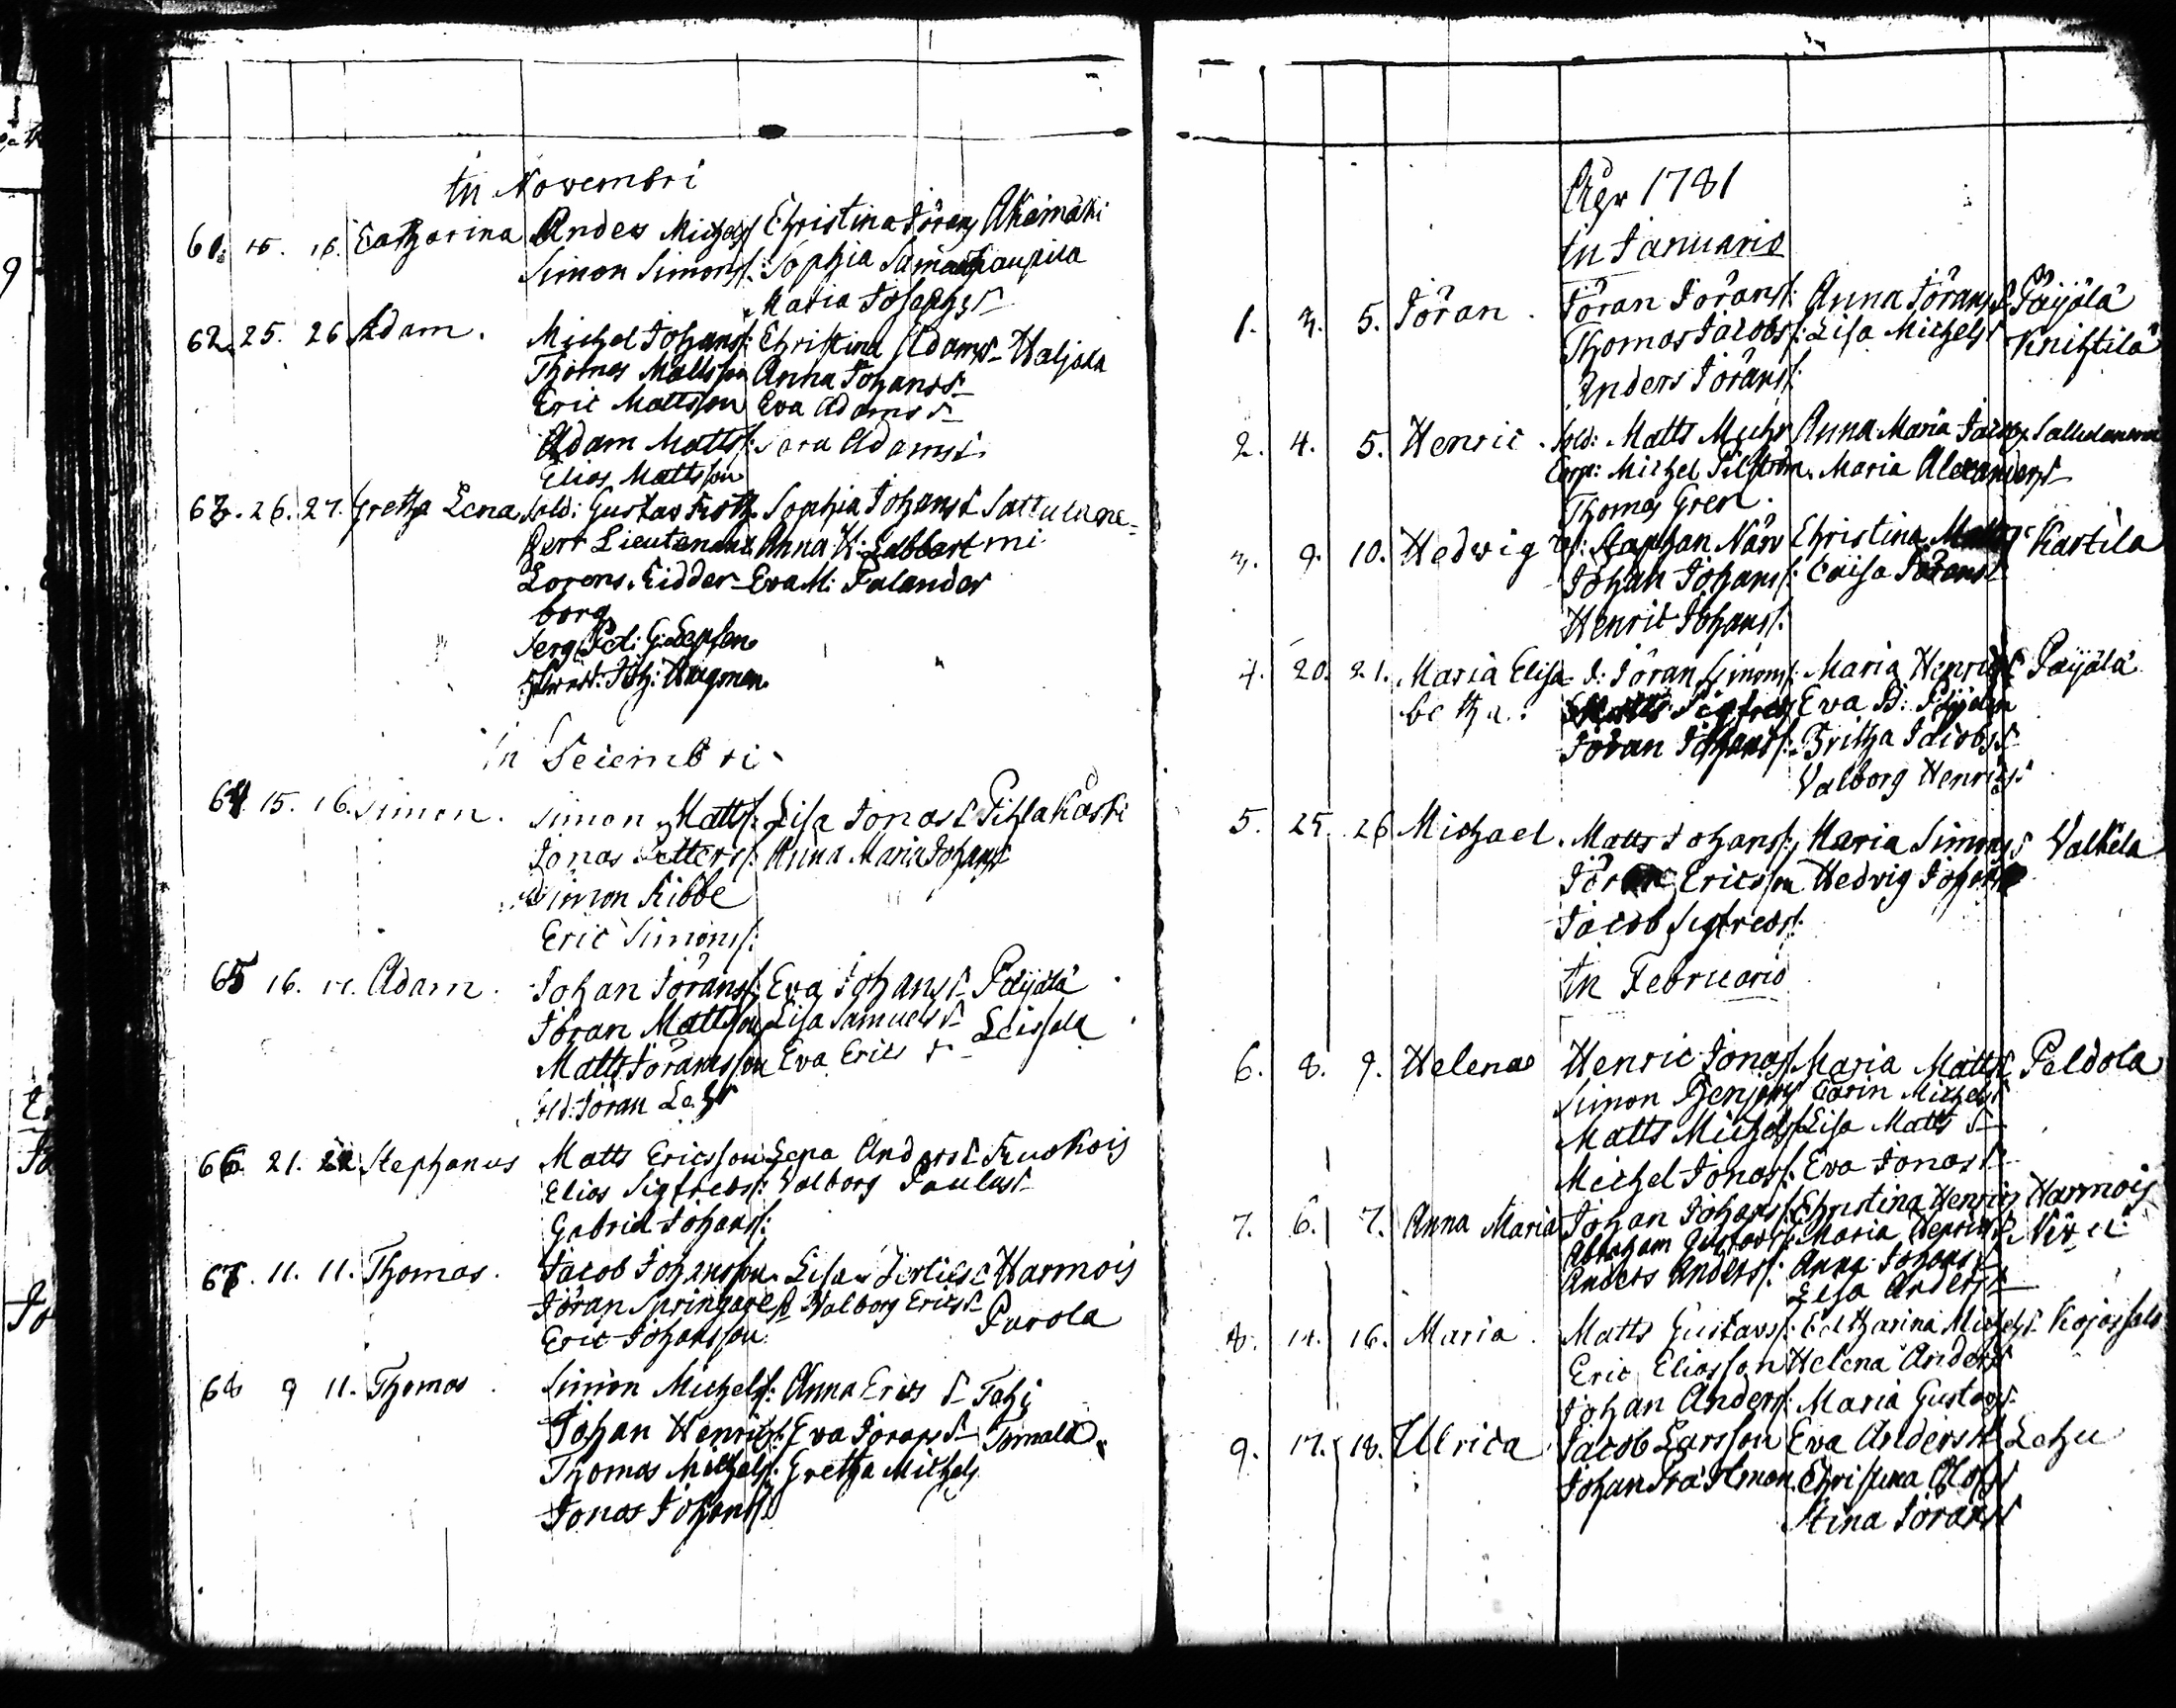 In Novembri
61. 15. 16. Catharina Anders Michelss: Christina Jörans Akamäki
Simon Simonss: Sophia Samuels Paupila
Maria Josephsd
62. 25. 26 Adam. Michel Johanss: Christina Adamsd Haljala
Thomas Mattsson Anna Johansd
Eric Mattsson Eva Adamsd
Adam Mattss: Sara Adamsd
Elias Mattsson
63. 26. 27. Gretha Lena Sold: Gustav Johansd Sattulane-
Herr Lieutenant Anna K: Gabbart mi
Lorens Ridder- Eva M: Palander
borg
Joh: Hagman
In Decembri
64 15. 16. Simon. Simon Mattss: Lisa Jonasd Pihlakaski
Jonas Petterss: Anna Maria Johansd
Simon Kibbe
Eric Simonss:
65 16. 17. Adam. Johan Jöranss: Eva Johansd Päijälä
Jöran Mattsson Lisa Samuelsd Leissala
Matts Göransson Eva Ericsd
Sold: Jöran
66. 21. 22 Stephanus Matts Ericsson Lena Andersd Kuohois
Elias Sigfredss: Walborg Paulusd
Gabriel Johanss:
67. 11. 11. Thomas. Jacob Johansson Lisa Harmois
Jöran Springare Walborg Ericsd Parola
Eric Johansson
68 9 11. Thomas. Simon Michelss: Anna Ericsd Tahi
Johan Henricss: Eva Joransd Tomala
Thomas Michelss: Gretha Michels
Jonas Johanss:
Åhr 1781
In Januario
1. 3. 5. Jöran. Jöran Joranss: Anna Joransd Päijälä
Thomas Jacobss: Lisa Michelsd Knihtilä
Anders Jöranss:
2. 4. 5. Henric. Sold: Matts Muhr Anna Maria Jacobs
Corp: Michel Maria Alexandersd
Thomas Gren.
3. 9. 10. Hedwig Staphan Närv Christina Kastila
Johan Johanss: Caisa Joransd
Henric Johanss:
4. 20. 21. Maria Elisa- Jöran Simonss: Maria Henricsd Päijälä
betha. Matts Sigfredss Eva
Joran Johanss: Britha Jacobsd
Valborg Henricsd
5. 25. 26 Michael. Matts Johanss: Maria Simonsd Valkela
Jöran Ericsson Hedvig Johansd
Jacob Sigfredss:
In Februario
6. 8. 9. Helena Henric Jonass: Maria Mattsd Peldola
Simon Benjams Carin Michelsd
Matts Michelss Lisa Mattsd
Michel Jonass: Eva Jonasd
7. 6. 7. Anna Maria Johan Johanss: Christina Henrics Harmois
Abraham Gustavss: Maria Henricsd
Anders Anderss: Anna Johansd
Lisa Andersd
8. 14. 16. Maria. Matts Gustavss: Catharina Michelsd
Eric Eliasson Helena Andersd
Johan Anderss: Maria Gustavsd
9. 17. 18. Ulrica. Jacob Larsson Eva Andersd Lehu
Johan Christina Olofsd
Stina Joransd